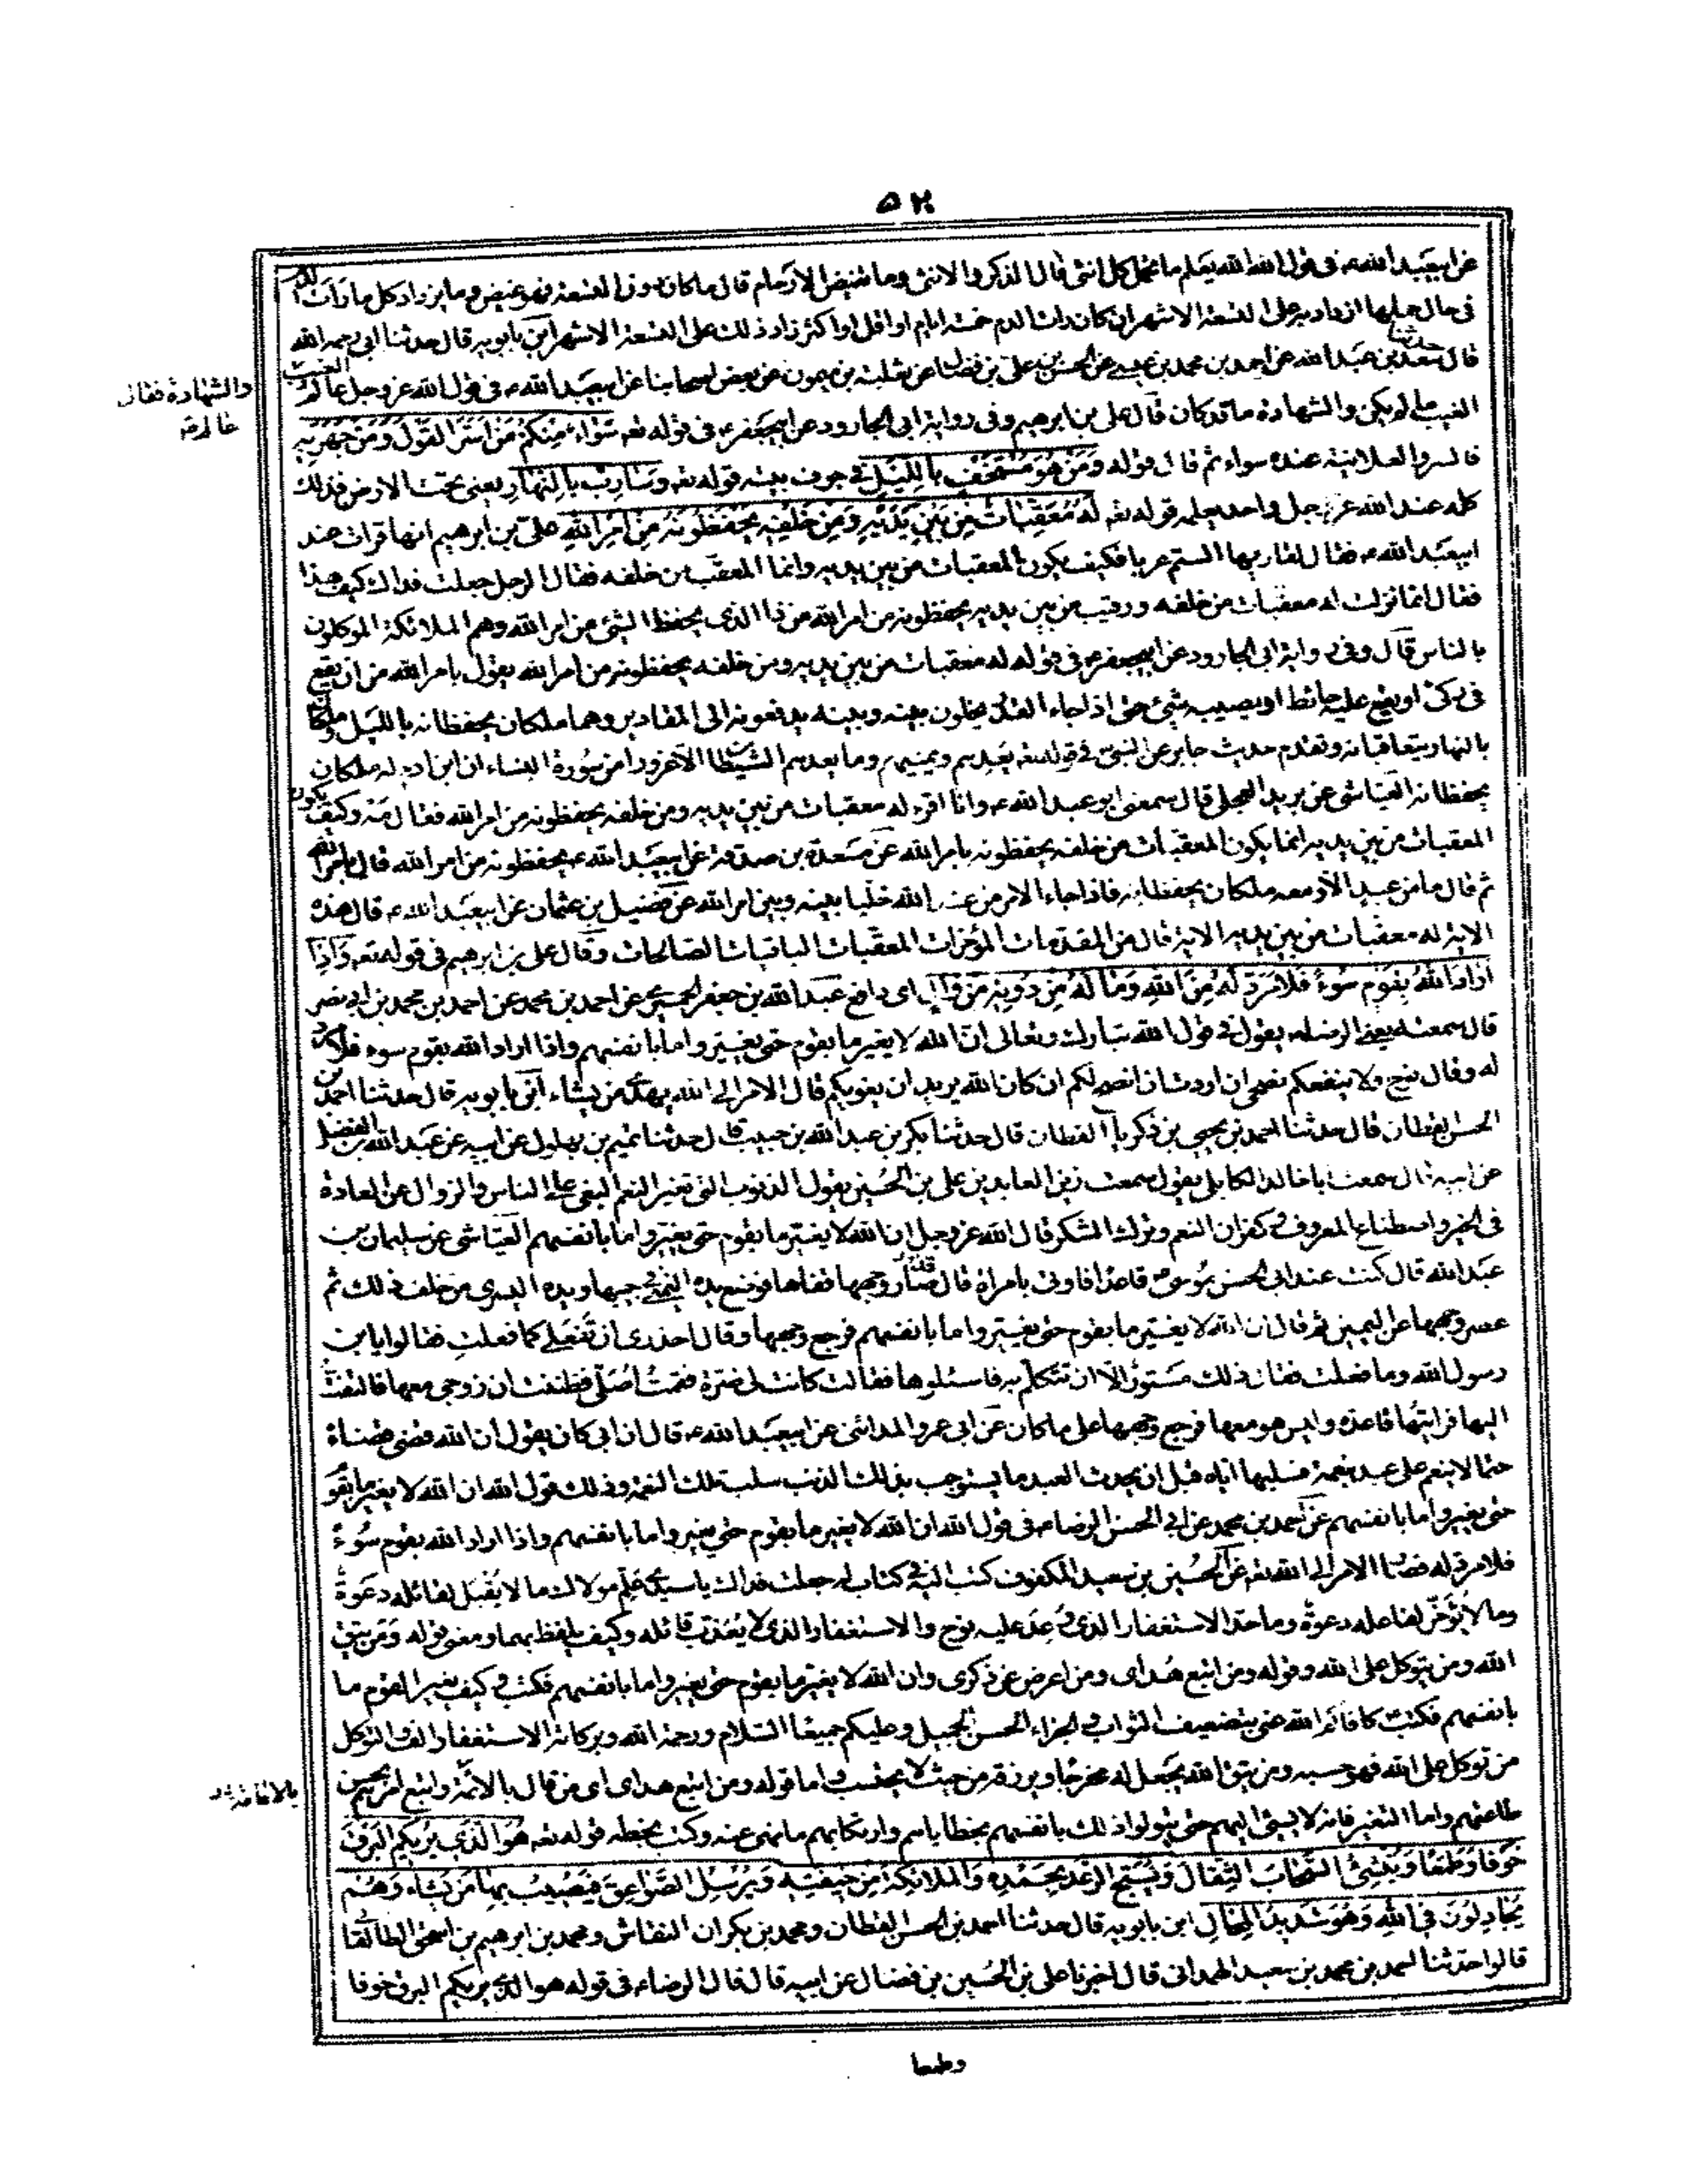 ٥٢٠
عن ابيعبد الله ع فى قول الله الله يعلم ما تحمل كل انثى قال الذكر والانثى وما تغيض الارحام قال ما كان دون التسعة فهو غيض وما يزداد كل ما رأت الدم
فى حال حملها ازداد به على التسعة الاشهر ان كان رأت الدم خمسة ايام او اقل او اكثر زاد ذلك على التسعة الاشهر ابن بابويه قال حدثنا ابى رحمه الله
قال حدثنا سعد بن عبد الله عن احمد بن محمد بن عيسى عن الحسن بن على بن فضال عن ثعلبة بن ميمون عن بعض اصحابنا عن ابيعبد الله ع فى قول الله عز وجل عالم الغيب
والشهادة فقال
عالم
الغيب ما لم يكن والشهادة ما قد كان قال على بن ابرهيم وفى رواية ابى الجارود عن ابيجعفر ع فى قوله تعه سَوَاءٌ مِنْكُمْ مَنْ اَسَرَّ الْقَوْلَ وَمَنْ جَهَرَ بِهِ
فالسر والعلانية عنده سواء ثم قال قوله وَمَنْ هُوَ مُسْتَخْفٍ بِاللَّيْلِ فى جوف بيته قوله تعه وَسَارِبٌ بِالنَّهَارِ يعنى تحت الارض فذلك
كله عند الله عز وجل واحد يعلمه قوله تعه لَهُ مُعَقِّبَاتٌ مِنْ بَيْنِ يَدَيْهِ وَمِنْ خَلْفِهِ يَحْفَظُونَهُ مِنْ اَمْرِ اللهِ على بن ابرهيم انها قرات عند
ابيعبد الله ع فقال لقاريها الستم عربا فكيف يكون المعقبات من بين يديه وانما المعقب من خلفه فقال الرجل جعلت فداك كيف هذا
فقال انما نزلت له معقبات من خلفه ورقيب من بين يديه يحفظونه من امر الله من ذا الذى يحفظ الشئ من امر الله وهم الملائكة الموكلون
بالناس قال وفى رواية ابى الجارود عن ابيجعفر ع فى قوله له معقبات من بين يديه ومن خلفه يحفظونه من امر الله يقول بامر الله من ان يقع
فى ركى او يقع عليه حائط او يصيبه شئ حتى اذا جاء القدر يخلون بينه وبينه يدفعونه الى المقادير وهما ملكان يحفظانه بالليل وملكان
بالنهار يتعاقبانه وتقدم حديث جابر عن النبى ص فى قوله تعه يعدهم ويمنيهم وما يعدهم الشيطان الا غرورا من سورة النساء ان ابن ادم له ملكان
يحفظانه العياشى عن بريد العجلى قال سمعنى ابو عبد الله ع وانا اقرء له معقبات من بين يديه ومن خلفه يحفظونه من امر الله فقال مه وكيف يكون
المعقبات من بين يديه انما يكون المعقبات من خلفه يحفظونه بامر الله عن مسعدة بن صدقة عن ابيعبد الله ع يحفظونه من امر الله قال بامر الله
ثم قال ما من عبد الا ومعه ملكان يحفظانه فاذا جاء الامر من عند الله خليا بينه وبين امر الله عن فضيل بن عثمان عن ابيعبد الله ع قال هذه
الاية له معقبات من بين يديه الاية قال من المقدمات المؤخرات المعقبات الباقيات الصالحات وقال على بن ابرهيم فى قوله تعه وَاِذَا
اَرَادَ اللهُ بِقَوْمٍ سُوءً فَلَا مَرَدَّ لَهُ مِنَ اللهِ وَمَا لَهُ مِنْ دُونِهِ مِنْ وَالٍ اى دافع عبد الله بن جعفر الحميرى عن احمد بن محمد عن احمد بن محمد بن ابى نصر
قال سمعته يعنى الرضا ع يقول فى قول الله تبارك وتعالى ان الله لا يغير ما بقوم حتى يغيروا ما بانفسهم واذا اراد الله بقوم سوء فلا مرد
له وقال نوح ولا ينفعكم نصحى ان اردت ان انصح لكم ان كان الله يريد ان يغويكم قال الامر الى الله يهدى من يشاء ابن بابويه قال حدثنا احمد بن
الحسن القطان قال حدثنا احمد بن يحيى بن زكريا القطان قال حدثنا بكر بن عبد الله بن حبيب قال حدثنا تميم بن بهلول عن ابيه عن عبد الله بن الفضل
عن ابيه قال سمعت ابا خالد الكابلى يقول سمعت زين العابدين على بن الحسين يقول الذنوب التى تغير النعم البغى على الناس والزوال عن العادة
فى الخير واصطناع المعروف وكفران النعم وترك الشكر قال الله عز وجل ان الله لا يغير ما بقوم حتى يغيروا ما بانفسهم العياشى عن سليمان بن
عبد الله قال كنت عند ابى الحسن موسى ع قاعدا فاوتى بامراة قد صار وجهها قفاها فوضع يده اليمنى فى جبينها ويده اليسرى من خلف ذلك ثم
عصر وجهها عن اليمين ثم قال ان الله لا يغير ما بقوم حتى يغيروا ما بانفسهم فرجع وجهها وقال احذرى ان تفعلى كما فعلت فقالوا يابن
رسول الله وما فعلت فقال ذلك مستور الا ان تتكلم به فاسئلوها فقالت كانت لى ضرة فقمت اصلى فظننت ان زوجى معها فالتفت
اليها فرايتها قاعدة وليس هو معها فرجع وجهها على ما كان عن ابى عمرو المدائنى عن ابيعبد الله ع قال ان ابى كان يقول ان الله قضى قضاء
حتما لا ينعم على عبد بنعمة فسلبها اياه قبل ان يحدث العبد ما يستوجب بذلك الذنب سلب تلك النعمة وذلك قول الله ان الله لا يغير ما بقوم
حتى يغيروا ما بانفسهم عن احمد بن محمد عن ابى الحسن الرضا ع فى قول الله ان الله لا يغير ما بقوم حتى يغيروا ما بانفسهم واذا اراد الله بقوم سوءً
فلا مرد له فصار الامر الى الله تعه عن الحسين بن سعيد المكفوف كتب اليه فى كتاب له جعلت فداك يا سيدى علم مولاك ما لا يقبل لقائله دعوة
وما لا يؤخر لفاعله دعوة وما حد الاستغفار الذى وعد عليه نوح والاستغفار الذى لا يعذب قائله وكيف يلفظ بهما ومعنى قوله ومن يتق
الله ومن يتوكل على الله وقوله ومن اتبع هداى ومن اعرض عن ذكرى وان الله لا يغير ما بقوم حتى يغيروا ما بانفسهم فكتب وكيف يغير القوم ما
بانفسهم فكتب كافاكم الله عنى بتضعيف الثواب والجزاء الحسن الجميل وعليكم جميعا السلام ورحمة الله وبركاته الاستغفار الف والتوكل
من توكل على الله فهو حسبه ومن يتق الله يجعل له مخرجا ويرزقه من حيث لا يحتسب واما قوله ومن اتبع هداى اى من قال بالائمة واتبع امرهم بحسن
طاعتهم واما التغير فانه لا يسئ اليهم حتى يتولوا ذلك بانفسهم بخطاياهم وارتكابهم ما نهى عنه وكتب بخطه قوله تعه هُوَ الَّذِى يُرِيكُمُ الْبَرْقَ
خَوْفًا وَطَمَعًا وَيُنْشِئُ السَّحَابَ الثِّقَالَ وَيُسَبِّحُ الرَّعْدُ بِحَمْدِهِ وَالْمَلَائِكَةُ مِنْ خِيفَتِهِ وَيُرْسِلُ الصَّوَاعِقَ فَيُصِيبُ بِهَا مَنْ يَشَاءُ وَهُمْ
يُجَادِلُونَ فِى اللهِ وَهُوَ شَدِيدُ الْمِحَالِ ابن بابويه قال حدثنا احمد بن الحسن القطان ومحمد بن بكران النقاش ومحمد بن ابرهيم بن اسحق الطالقانى
قالوا حدثنا احمد بن محمد بن سعيد الهمدانى قال اخبرنا على بن الحسين بن فضال عن ابيه قال قال الرضا ع فى قوله هو الذى يريكم البرق خوفا
وطمعا